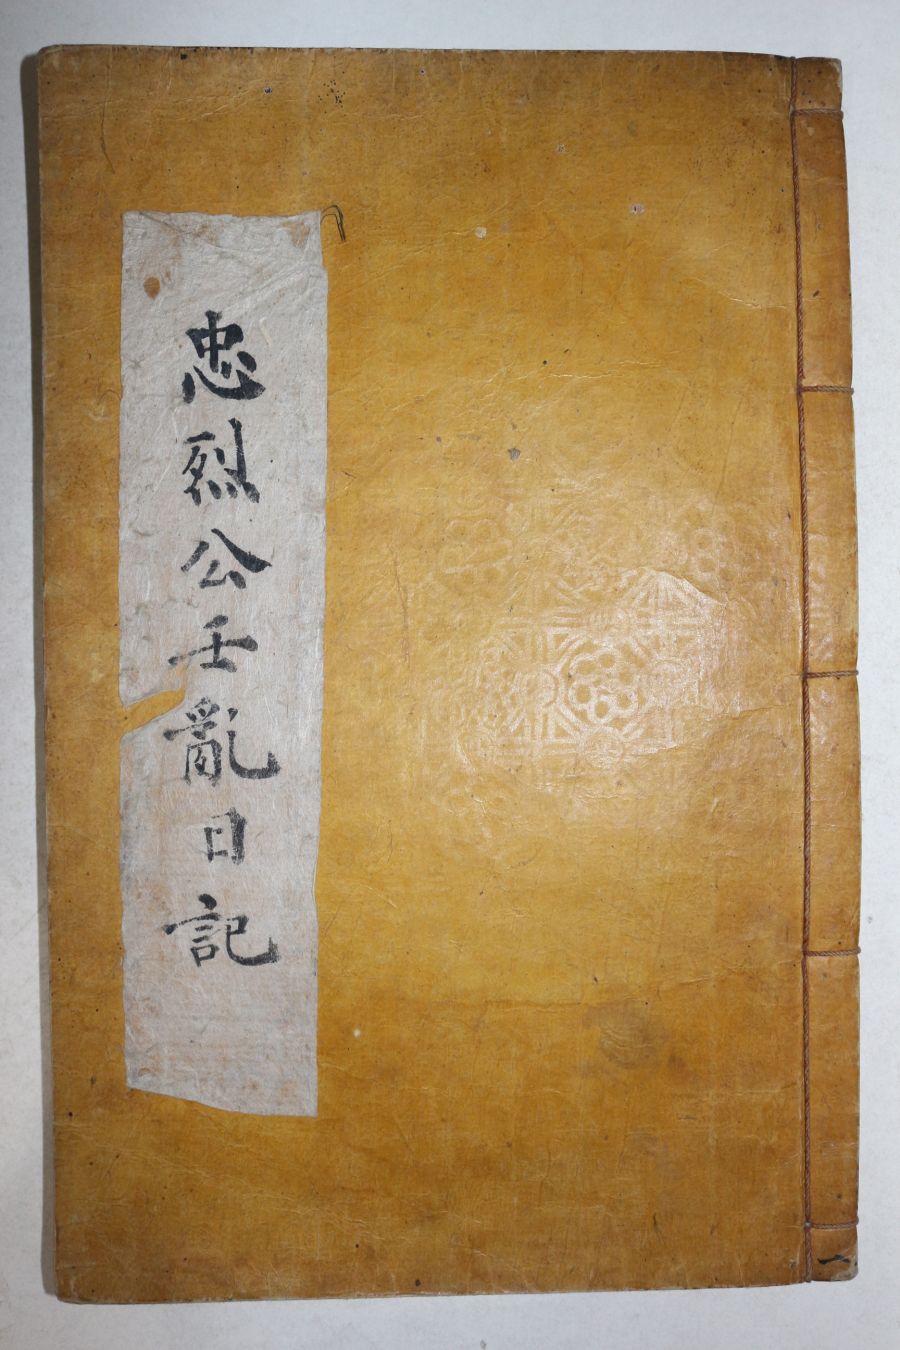 忠烈公壬亂日記
一